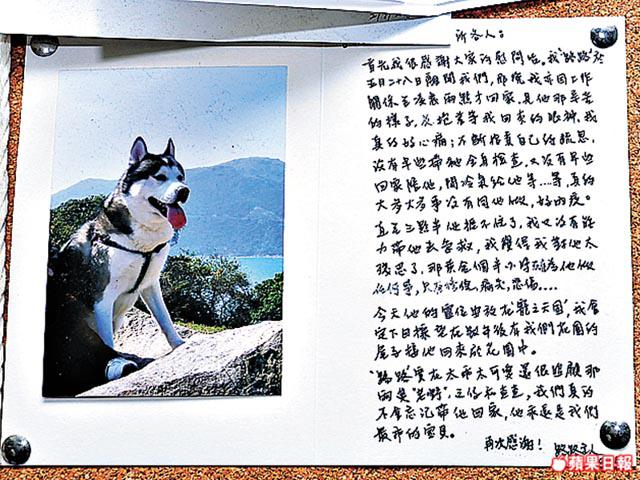 所各人：
首先我很感謝大家的慰問咭。我"路路"於
五月二十八日離開我們，那晚我來因工作
關係至凌晨兩點才回家，見他那辛苦
的樣子，及抱著等我回來的眼神，我
真的好心痛；不斷指責自己的疏忽，
沒有早些帶他全身檢查，又沒有早些
回家陪他，開冷氣給他等…等，真的
大多大多事沒有同他做，好內疚。
直至三點半他捱不住了，我又沒有能
力帶他去急救，我覺得我對他太
殘忍了，那麼全個半小時確為他做
任何事，只有懊悔，痛哭，悲傷…
今天他的靈位安放在"寵之天國"，我會
定下目標望在數年後有我們花園的
屋子接他回來於花園中。
"路路"實在太乖太可愛還很追顧那
兩英"芝蔴"，三位太君查，我們真的
不會忘記帶他回家，他永遠是我們
最乖的寶貝。
再次感謝！ 路路主人
蘋果日報